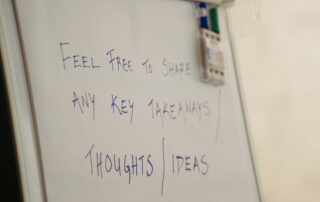 FEEL FREE TO SHARE
ANY KEY TAKEAWAYS /
THOUGHTS / IDEAS